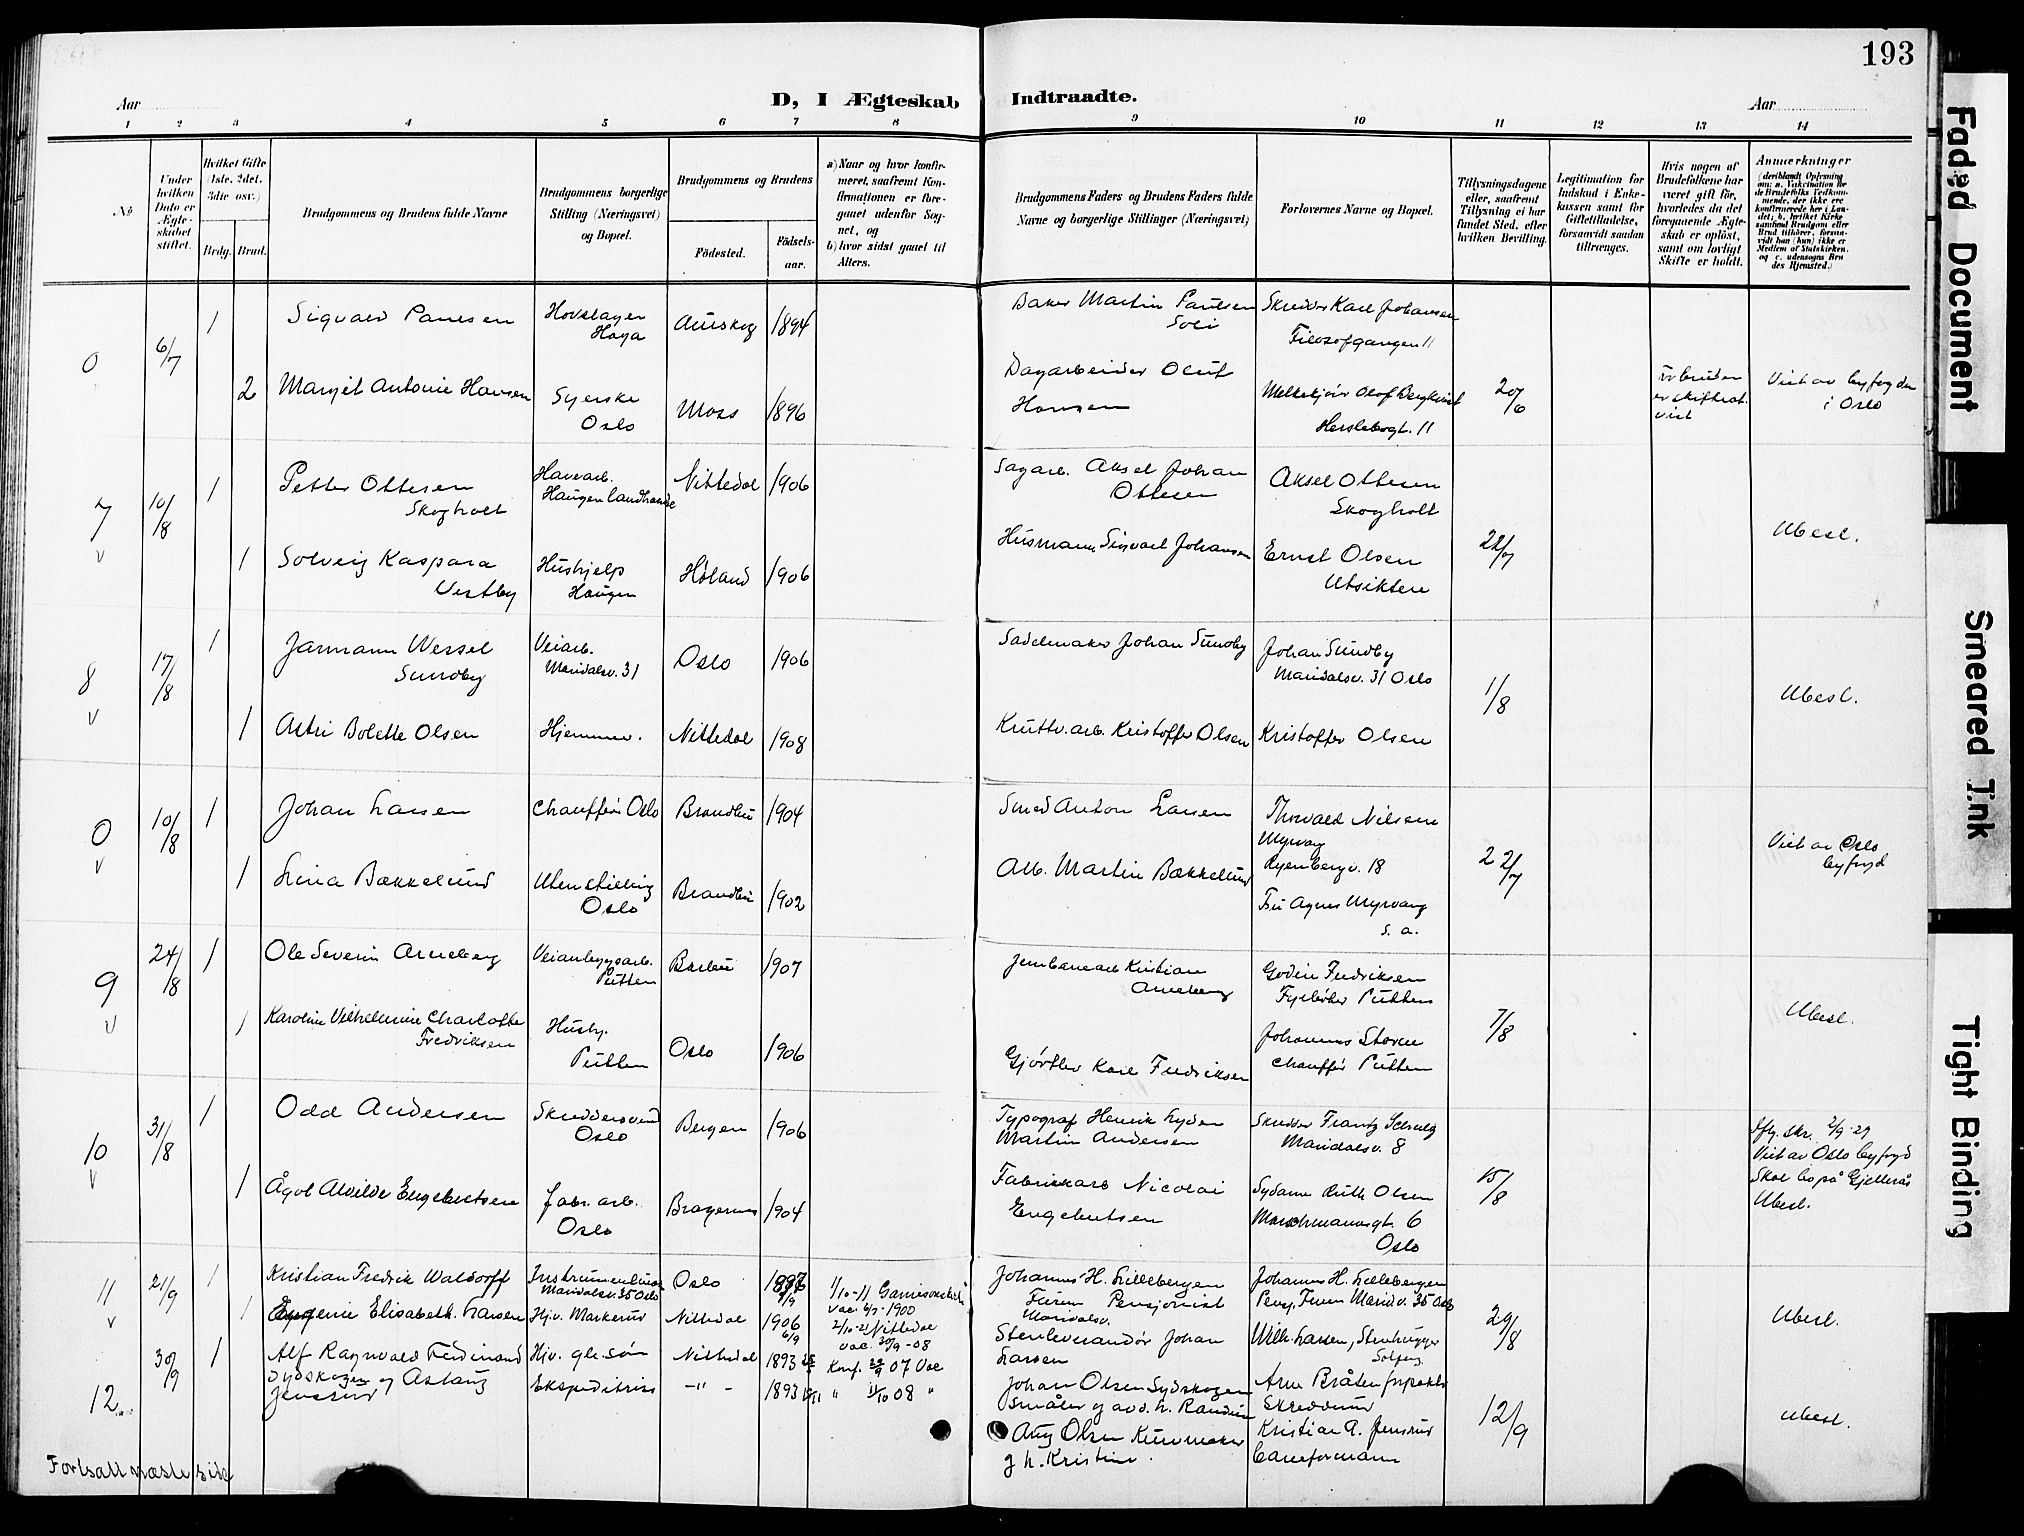 193
Aar
D, I Ægteskab
Indtraadte.
Aar
1 2 3 4 5 6 7 8 9 10 11 12 13 14
No
Under hvilken Dato er Ægteskabet stiftet.
Hvilket Gifte (1ste, 2det, 3die osv.)
Brdg. Brud.
Brudgommens og Brudens fulde Navne
Brudgommens borgerlige Stilling (Næringsvei) og Bopæl.
Brudgommens og Brudens
Födested.
Födsels-aar.
a) Naar og hvor konfirmeret, saafremt Konfirmationen er foregaaet udenfor Sognet, og
b) hvor sidst gaaet til Alters.
Brudgommens Faders og Brudens Faders fulde Navne og borgerlige Stillinger (Næringsvei)
Forlovernes Navne og Bopæl.
Tillysningsdagene eller, saafremt Tillysning ei har fundet Sted, efter hvilken Bevilling.
Legitimation for Indskud i Enkekassen samt for Giftetilladelse, forsaavidt saadan tiltrænges.
Hvis nogen af Brudefolkene har været gift för, hvorledes da det foregaaende Ægteskab er oplöst, samt om lovligt Skifte er holdt.
Anmerkninger (deriblandt Oplysning om: a. Vakcination for de Brudefolks Vedkommende, der ikke ere konfirmerede her i Landet; b. hvilket Kirkesamfund Brudgom eller Brud tilhörer, forsaavidt han (hun) ikke er Medlem af Statskirken, og c. udensogns Brudes Hjemsted.)
0 6/7 1 Sigvald Paulsen Hovslager Haga Aurskog 1894 Baker Martin Paulsen Soli Skredder Karl Johansen Filosofgangen 11
2 Margit Antonie Hansen Syerske Oslo Moss 1896 Dagarbeider Oluf Hansen Melkekjører Olof Bergkvist Herslebsgt. 11 20/6 Viet av byfogden i Oslo
7 10/8 1 Petter Ottesen Skogholt Havearb. Haugen landhandel Nittedal 1906 Sagarb. Aksel Johan Ottesen Aksel Ottesen Skogholt
1 Solveig Kaspara Vestby Hushjelp Haugen Høland 1906 Husmann Sigvart Johansen Ernst Olsen Utsikten 22/7 Ubesl.
8 17/8 1 Jarmann Wessel Sundby Veiarb. Maridalsv. 31 Oslo 1906 Sadelmaker Johan Sundby Johan Sundby Maridalsv. 31 Oslo
1 Astri Bolette Olsen Hjemmev. Nittedal 1908 Kruttv.arb. Kristoffer Olsen Kristoffer Olsen 1/8 Ubesl.
0 10/8 1 Johan Larsen Chauffør Oslo Brandbu 1904 Smed Anton Larsen Thorvald Nilsen Myrvang Ryenbergv. 18
1 Lina Bækkelund Uten stilling Oslo Brandbu 1902 Arb. Martin Bækkelund Fru Agnes Myrvang s. a. 22/7 Viet av Oslo byfogd
9 24/8 1 Ole Severin Arneberg Veianleggsarb. Putten Barbu 1907 Jernbanearb Kristian Arneberg Godin Fredriksen Fyrbøter Putten
1 Karoline Vilhelmine Charlotte Fredriksen Hushj. Putten Oslo 1906 Gjørtler Karl Fredriksen Johannes Storen Chauffør Putten 7/8 Ubesl.
10 31/8 1 Odd Andersen Skreddersvend Oslo Bergen 1906 Typograf Henrik Lyder Martin Andersen Skredder Frantz Maridalsv. 8
1 Ågot Alvilde Engebretsen Fabr. arb. Oslo Bragernes 1904 Fabrikkarb Nicolai Engebretsen Sydame Ruth Olsen 6 Oslo 15/8 Iflg. skr. 2/9-29 Viet av Oslo byfogd Skal bo på Gjellerås Ubesl.
11 21/9 1 Kristian Fredrik Waldorff Maridalsv. 35 Oslo Oslo 1/10-11 Garnisons vac. 1900 Johannes H. Lillebergen Furen Pensjonist Maridalsv. Johannes H. Lillebergen Pensj. Furen Maridv. 35 Oslo
1 Eugenie Elisabeth Larsen Hjv. Markerud Nittedal 1906 6/9 2/10-21 Nittedal vac. 30/9-08 Stenleverandør Johan Larsen Wilh. Larsen, Stenhugger Solberg 29/8 Ubesl.
12 30/9 1 Alf Ragnvald Ferdinand Sydskogen og Aslaug Jensrud Hjv. gbr. søn Nittedal 1893 Konf. 07 Vac Johan Olsen Sydskogen Småbr og avd. h. Arne Bråten Skredderud
Ekspeditrise -"- 1893 " 11/10 08 " Aug Olsen Kurvmaker g h. Kristine. Kristian A. Jensrud Baneformann 12/9 Ubesl.
Fortsatt næste side
Faded Document
Smeared Ink
Tight Binding